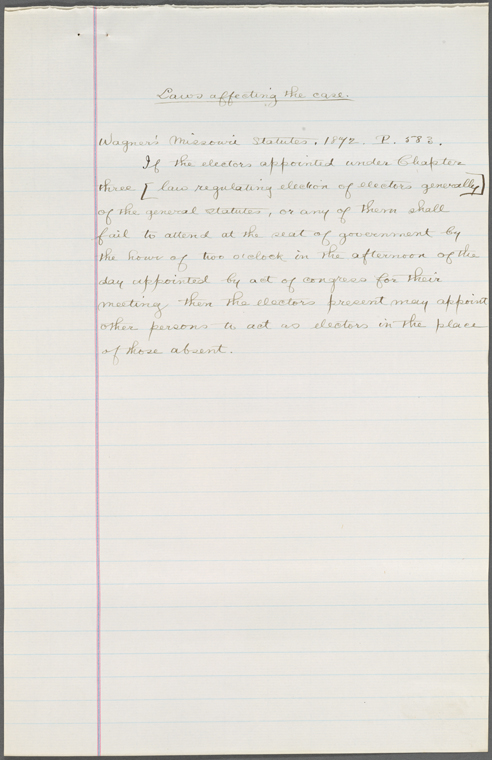 Laws affecting the case.
Wagner's Missouri Statutes. 1872. P. 583.
If the electors appointed under Chapter
three [law regulating election of electors generally]
of the general statutes, or any of them shall
fail to attend at the seat of government by
the hour of two o'clock in the afternoon of the
day appointed by act of congress for their
meeting then the electors present may appoint
other persons to act as electors in the place
of those absent.